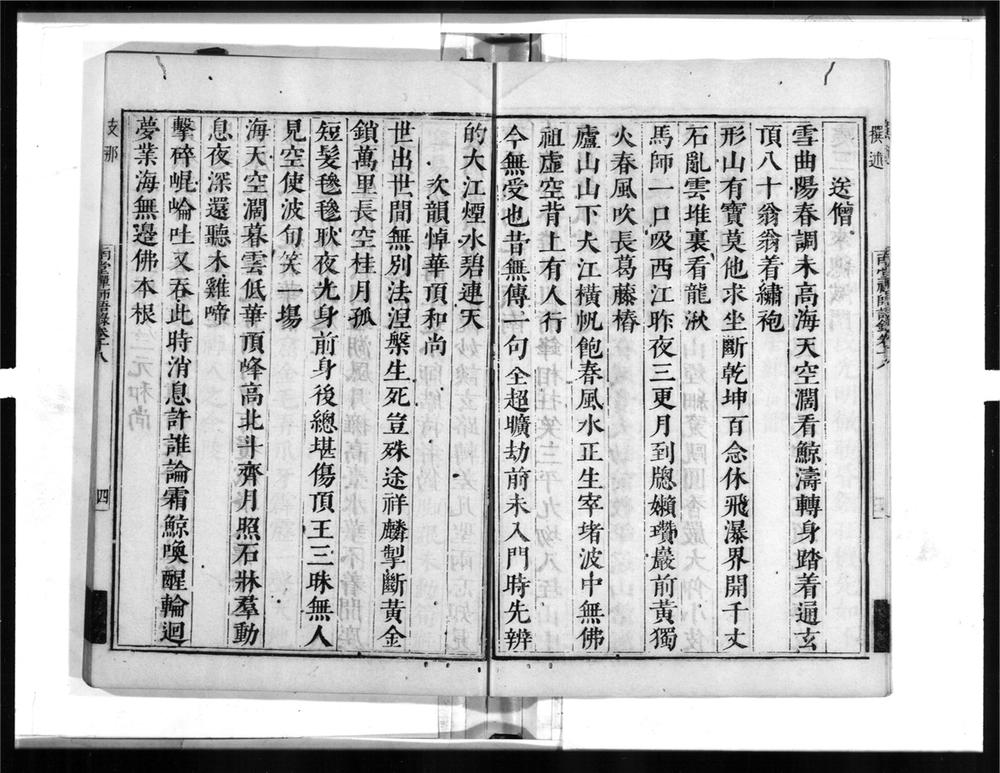 撰述
南堂禪師語錄卷十八
送僧
雪曲陽春調未高海天空濶看鯨濤轉身踏着通玄
頂八十翁翁着繡袍
形山有寶莫他求坐斷乾坤百念休飛瀑界開千丈
石亂雲堆裏看龍湫
馬師一口吸西江昨夜三更月到牕嬾瓚巖前黃獨
火春風吹長葛藤樁
廬山山下大江橫帆飽春風水正生窣堵波中無佛
祖虛空背上有人行
今無受也昔無傳一句全超曠劫前未入門時先辨
的大江煙水碧連天
次韻悼華頂和尚
世出世間無別法涅槃生死豈殊途祥麟掣斷黃金
鎖萬里長空桂月孤
短髮毿毿耿夜光身前身後總堪傷頂王三昧無人
見空使波旬笑一場
海天空濶暮雲低華頂峰高北斗齊月照石牀羣動
息夜深還聽木雞啼
擊碎崐崘吐又吞此時消息許誰論霜鯨喚醒輪迴
夢業海無邊佛本根
支那
南堂禪師語錄卷十八
四